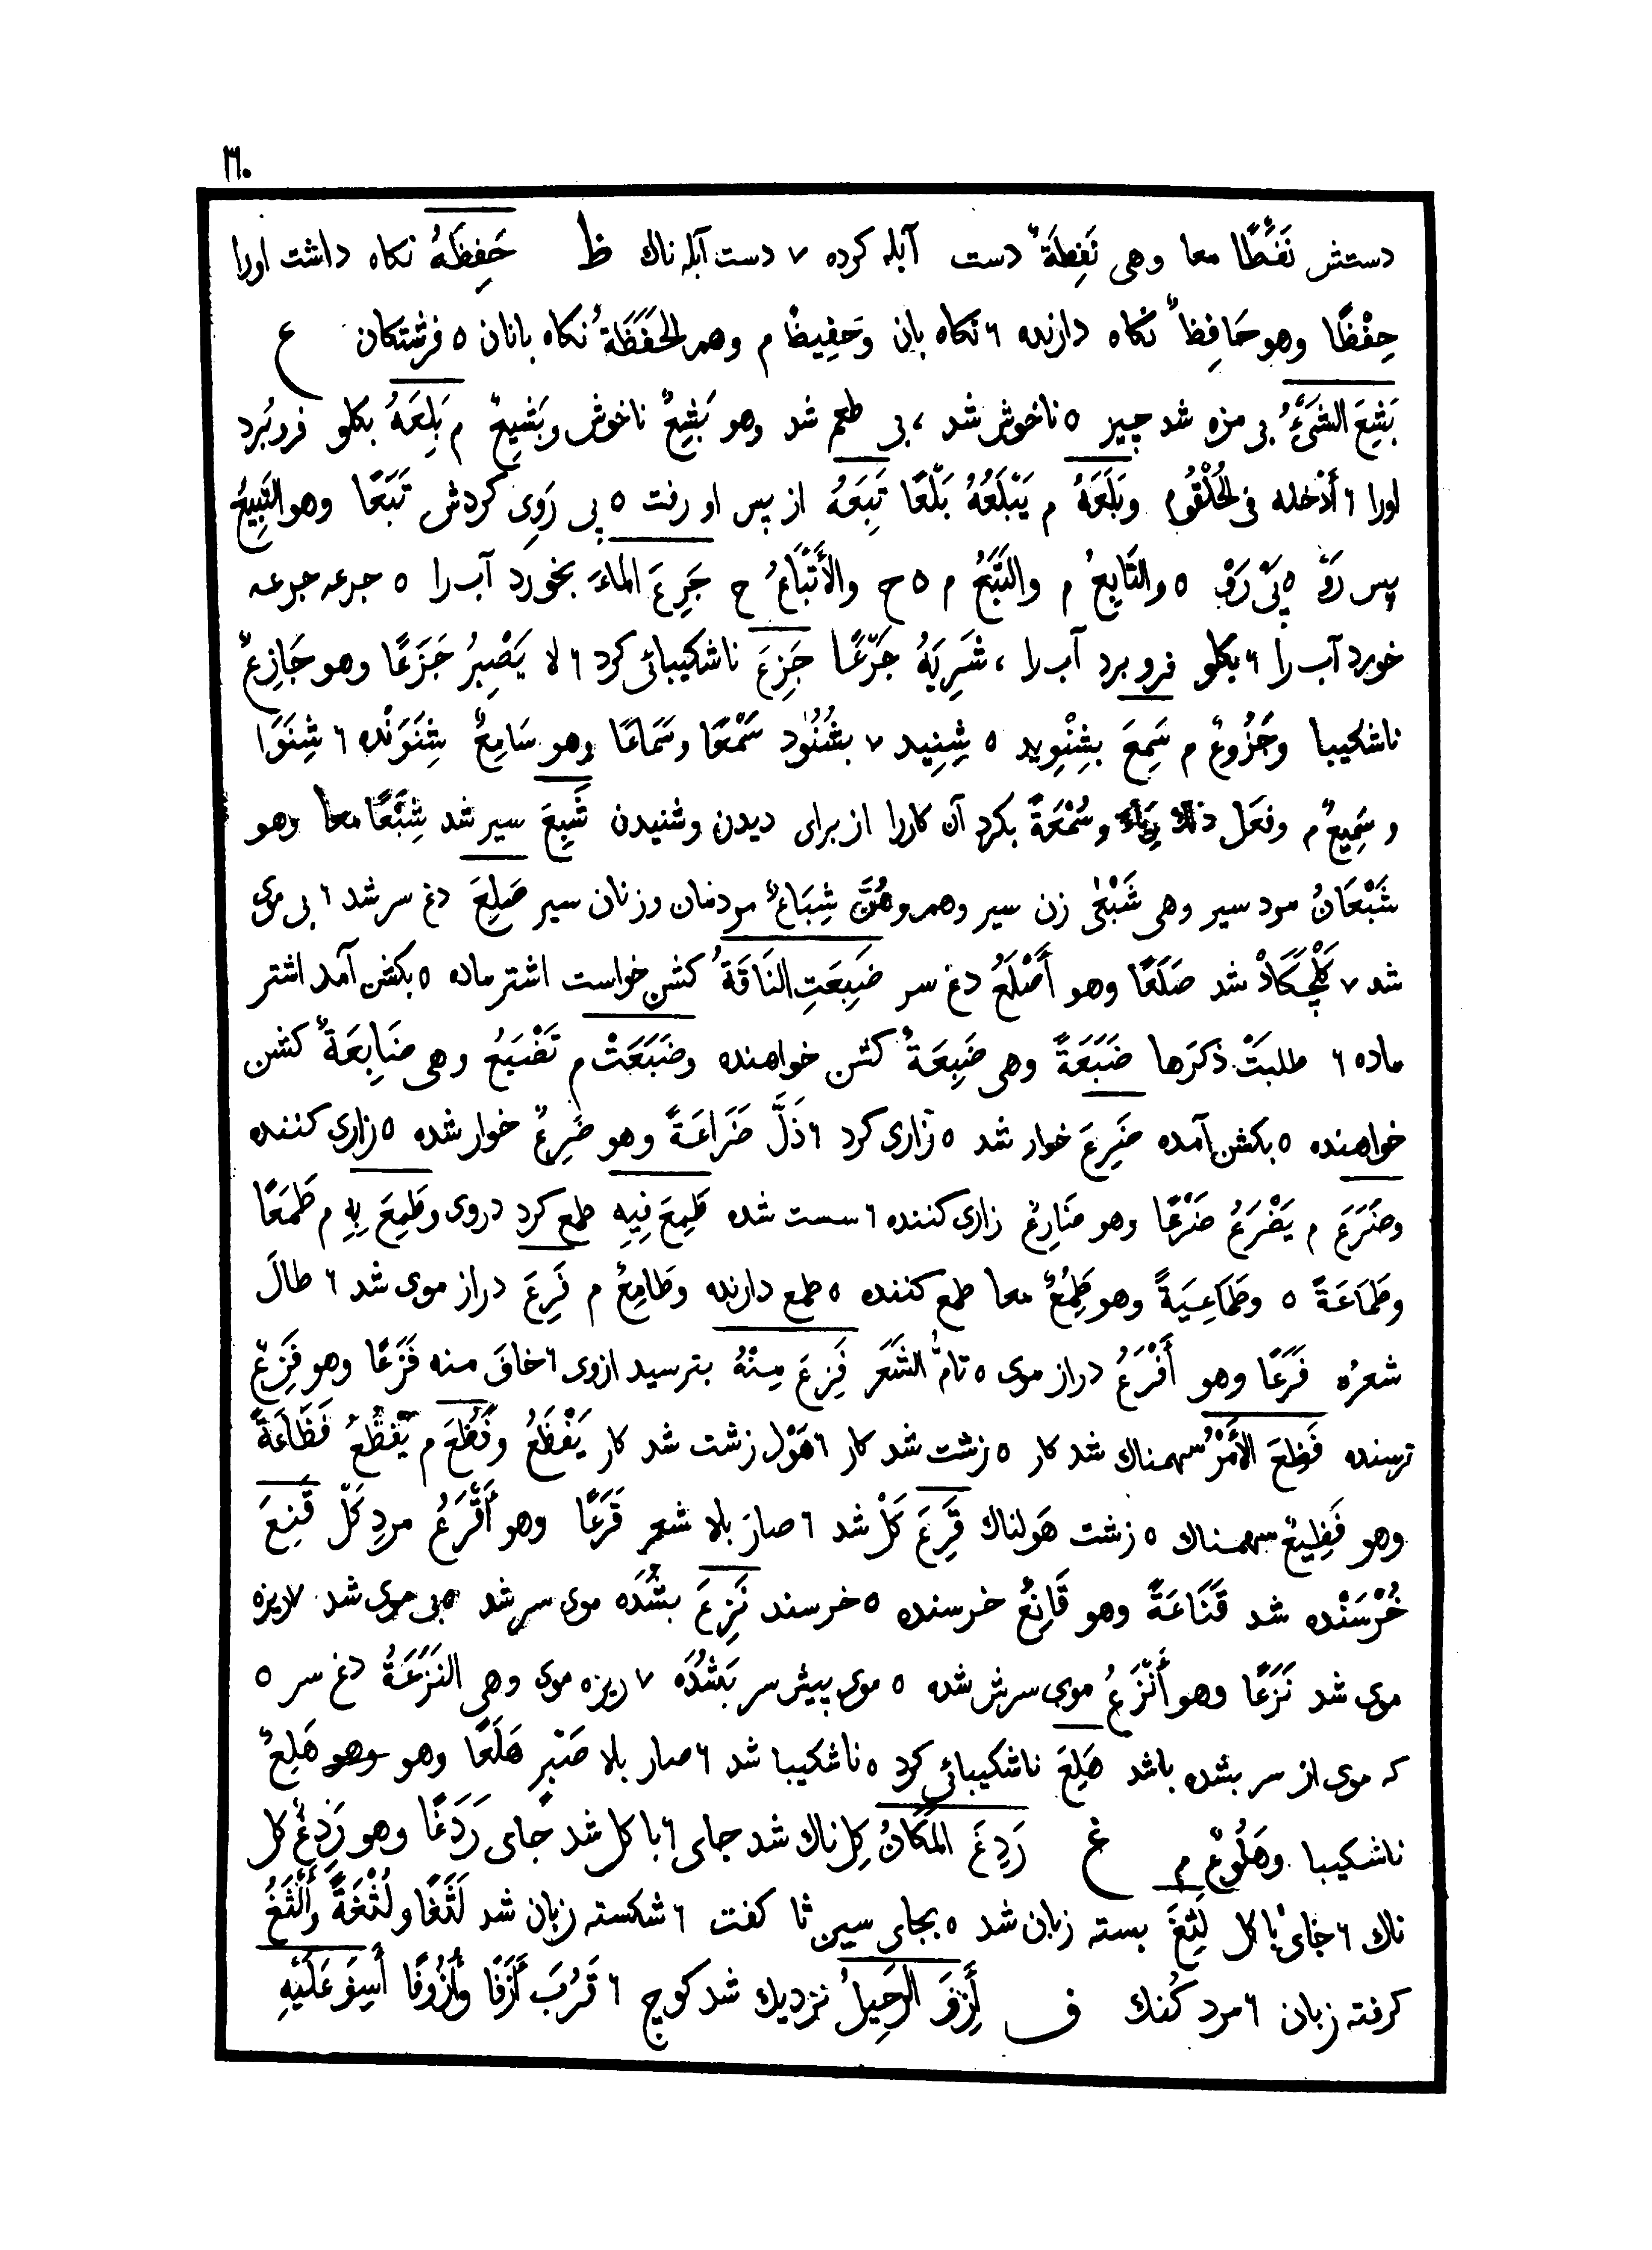 ٣٦٠
دستش نَفْطًا معا وهی نَفِطَةٌ دست آبله کرده ٧ دست آبله ناك ظ حَفِظَهُ نکاه داشت اورا
حِفْظًا وهو حَافِظٌ نکاه دارنده ٦ نکاه بان وَحَفِیظٌ م وهمر الحَفَظَةُ نکاه بانان ٥ فرشتکان ع
بَشِعَ الشَیْءُ بی مزه شد چیز ٥ ناخوش شد ، بی طعم شد وهو بَشِعٌ ناخوش وبَشِیعٌ م بَلِعَهُ بکلو فرو بُرد
اورا ٦ أدْخله فی الحُلْقُوم وبَلَعَهُ م یَبْلَعُهُ بَلْعًا تَبِعَهُ از پس او رفت ٥ پی رَوِی کردش تَبَعًا وهو التَّبِیعُ
پس رَوْ ٥ پَیْ رَوْ ٥ والتَّابِعُ م والتَّبَعُ م ٥ ح والأَتْبَاعُ ح جَرِعَ المَاءَ بخورد آب را ٥ جرعه جرعه
خورد آب را ٦ بکلو فرو برد آب را ، شَرِبَهُ جَرْعًا جَزِعَ ناشکیبائی کرد ٦ لا یَصْبِرُ جَزَعًا وهو جَازِعٌ
ناشکیبا وجَزُوعٌ م سَمِعَ بشِنْوِید ٥ شِنِید ٧ بشُنُود سَمْعًا وسَمَاعًا وهو سَامِعٌ شِنَوَنْده ٦ شِنَوَا
و سَمِیعٌ م وفعَل ذلك رِیَاءً وسُمْعَةً بکرد آن کاررا از برای دیدن وشنیدن شَبِعَ سیر شد شِبْعًا معا وهو
شَبْعَانُ مرد سیر وهی شَبْعٰی زن سیر وهمر وهُنَّ شِبَاعٌ مردمان وزنان سیر صَلِعَ دغ سر شد ٦ بی موی
شد ٧ کَلْچَکَادْ شد صَلَعًا وهو أَصْلَعُ دغ سر ضَبِعَتِ النَاقَةُ کشن خواست اشتر ماده ٥ بکشن آمد اشتر
ماده ٦ طلبَتْ ذکرَها ضَبَعَةً وهی ضَبِعَةٌ کشن خواهنده وضَبَعَتْ م تَضْبَعُ وهی ضَابِعَةٌ کشن
خواهنده ٥ بکشن آمده ضَرِعَ خوار شد ٥ زاری کرد ٦ ذَلَّ ضَرَاعَةً وهو ضَرِعٌ خوار شده ٥ زاری کننده
وضَرَعَ م یَضْرَعُ ضَرْعًا وهو ضَارِعٌ زاری کننده ٦ سست شده طَمِعَ فِیهِ طمع کرد دروی وطَمِعَ بِهِ م طَمَعًا
وطَمَاعَةً ٥ وطَمَاعِیَةً وهو طَمِعٌ معا طمع کننده ٥ طمع دارنده وطَامِعٌ م فَرِعَ دراز موی شد ٦ طالَ
شعرُه فَرَعًا وهو أَفْرَعُ دراز موی ٥ تامُّ الشَعَر فَزِعَ مِنْهُ بترسید ازوی ٦ خافَ منه فَزَعًا وهو فَزِعٌ
ترسنده فَظِعَ الأَمْرُ سهمناك شد کار ٥ زشت شد کار ٦ هَوْل زشت شد کار یَفْظَعُ وفَظُعَ م یَفْظُعُ فَظَاعَةً
وهو فَظِیعٌ سهمناك ٥ زشت هَولناك قَرِعَ کَلْ شد ٦ صارَ بلا شعر قَرَعًا وهو أَقْرَعُ مردِ کَلْ قَنِعَ
خُرْسَنْده شد قَنَاعَةً وهو قَانِعٌ خرسنده ٥ خرسند نَزِعَ بشُدَه موی سر شد ٥ بی موی شد ٧ ریزه
موی شد نَزَعًا وهو أَنْزَعُ موی سرش شده ٥ موی پیش سر بَشُدَه ٧ ریزه موی وهی النَزَعَةُ دغ سر ٥
که موی از سر بشده باشد هَلِعَ ناشکیبائی کرد ٥ ناشکیبا شد ٦ صار بلا صَبْرٍ هَلَعًا وهو وهو هَلِعٌ
ناشکیبا وهَلُوعٌ م غ رَدِغَ المَکَانُ کِل ناك شد جای ٦ با کل شد جای رَدَغًا وهو رَدِغٌ کل
ناك ٦ جای با کل لَثِغَ بسته زبان شد ٥ بجای سین ثا کفت ٦ شکسته زبان شد لَثَغًا ولُثْغَةً وأَلْثَغُ
کرفته زبان ٦ مرد کُنك ف أَزِفَ الرَحِیلُ نزدیك شد کوچ ٦ قَرُبَ أَزَفًا وأُزُوفًا أَسِفَ عَلَیْهِ